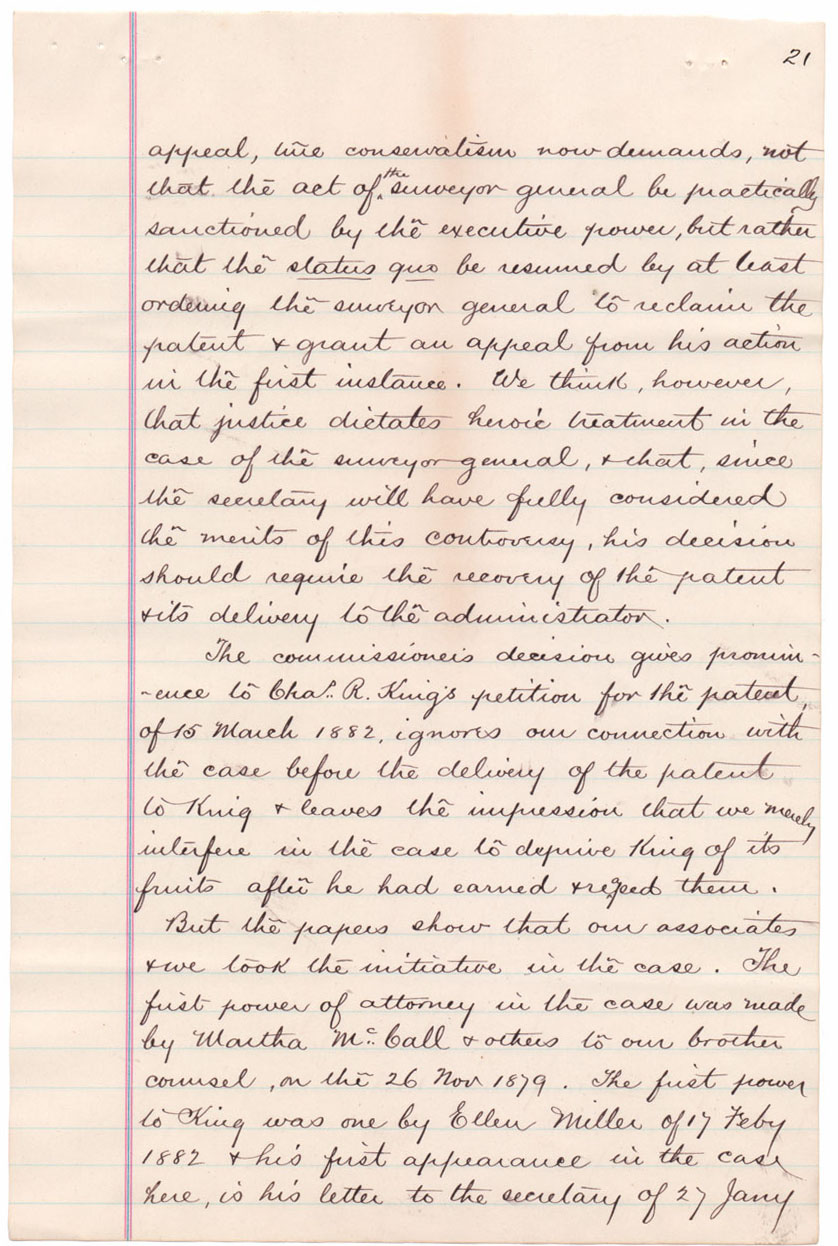 21
appeal, true conservatism now demands, not
that the act of the surveyor general be practically
sanctioned by the executive power, but rather
that the status quo be resumed by at least
ordering the surveyor general to reclaim the
patent & grant an appeal from his action
in the first instance. We think, however,
that justice dictates heroic treatment in the
case of the surveyor general, & that, since
the secretary will have fully considered
the merits of this controversy, his decision
should require the recovery of the patent
& its delivery to the administrator.
The commissioner's decision gives promin-
-ence to Chas. R. King's petition for the patent,
of 15 March 1882, ignores our connection with
the case before the delivery of the patent
to King & leaves the impression that we merely
interfere in the case to deprive King of its
fruits after he had earned & reaped them.
But the papers show that our associates
& we took the initiative in the case. The
first power of attorney in the case was made
by Martha McCall & others to our brother
counsel, on the 26 Nov 1879. The first power
to King was one by Ellen Miller of 17 Feby
1882 & his first appearance in the case
here, is his letter to the secretary of 27 Jany